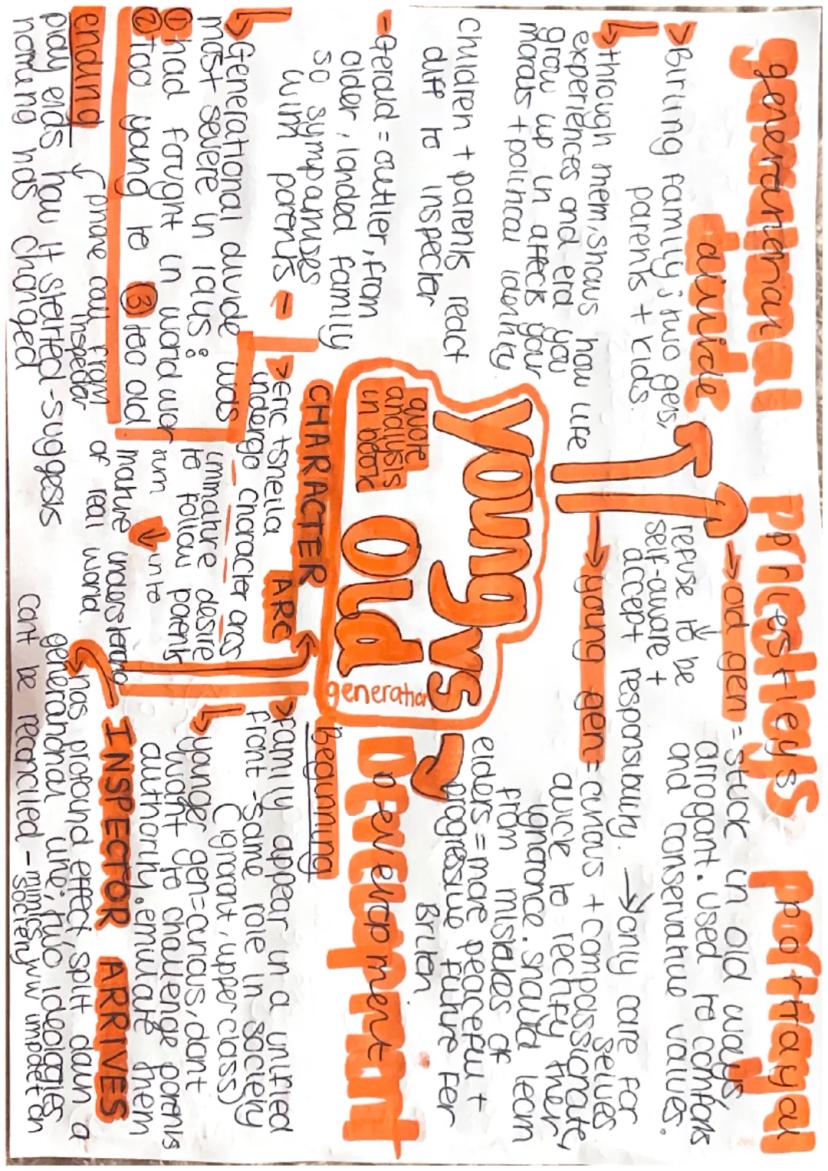 generational
divide
> Birling family; two gens,
parents + kids.
↳ through mem, shows how life
experiences and era you
grow up in affects your
morals + political identity
children + parents react
diff to inspector
- Gerald = outlier, from
older, landed family
so sympathises
with parents -
↳ Generational divide was
most severe in 1945:
① had fought in world war
② too young to ③ too old
ending ↓ phone call from
inspector
play ends how it started - suggests
nothing has changed
priestleys portrayal
→ old gen = stuck in old ways,
arrogant. used to comforts
and conservative values.
refuse to be
self-aware +
accept responsibility. → only care for
selves
→ young gen = curious + compassionate,
quick to rectify their
ignorance. should learn
from mistakes of
elders = more peaceful +
progressive future for
Britain
young vs
old
generation
quote
analysis
in book
CHARACTER
ARC
→ Eric + Sheila
undergo character arcs
immature desire
to follow parents
turn ↓ into
mature understand
of real world.
Development
beginning
> family appear in a unified
front - same role in society
(ignorant, upper class)
↳ younger gen = curious, don't
want to challenge parents
authority. emulate them
INSPECTOR ARRIVES
↳ has profound effect, split down a
generational line; two ideologies
cant be reconciled - mimics
society ww impact on